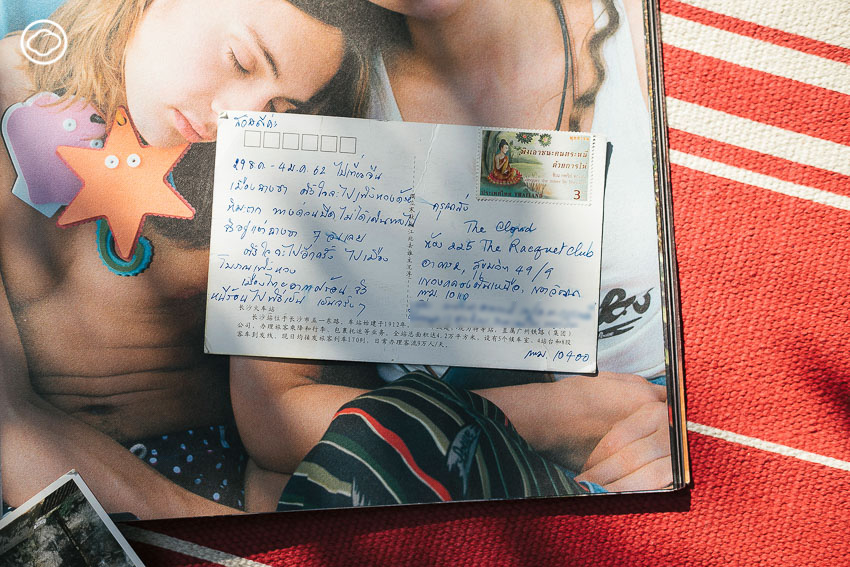 สวัสดีค่ะ
29 ธ.ค. - 4 ม.ค. 62 ไปเที่ยวจีน
เมืองฉางซา ตั้งใจจะไปเฟิ่งหวงด้วย
หิมะตก ทางด่วนปิด ไม่ได้
อยู่แต่ฉางซา 7 วันเลย
ตั้งใจจะไปอีกครั้ง ไปเมือง
โบราณเฟิ่งหวง
เมืองไทยอากาศร้อน
หนีร้อนไปพึ่งเย็น เย็นจริงๆ
长沙火车站
长沙站位于长沙市五一东路，车站始建于1912年
公司，办理旅客乘降和行李、包裹托运等业务。全站总面积达4.2万平方米，设有5个候车室、4站台和8股
客车到发线，现日均接发旅客列车170列，日常办理客流9万人/天。
ชนะคนตระหนี่
ด้วยการให้
ประเทศไทย THAILAND
3
The Cloud
ห้อง 225 The Racquet club
อาคาร, สุขุมวิท 49/9
แขวงคลองตันเหนือ, เขตวัฒนา
กทม. 10110
直属广州铁路（集团）
กทม. 10400